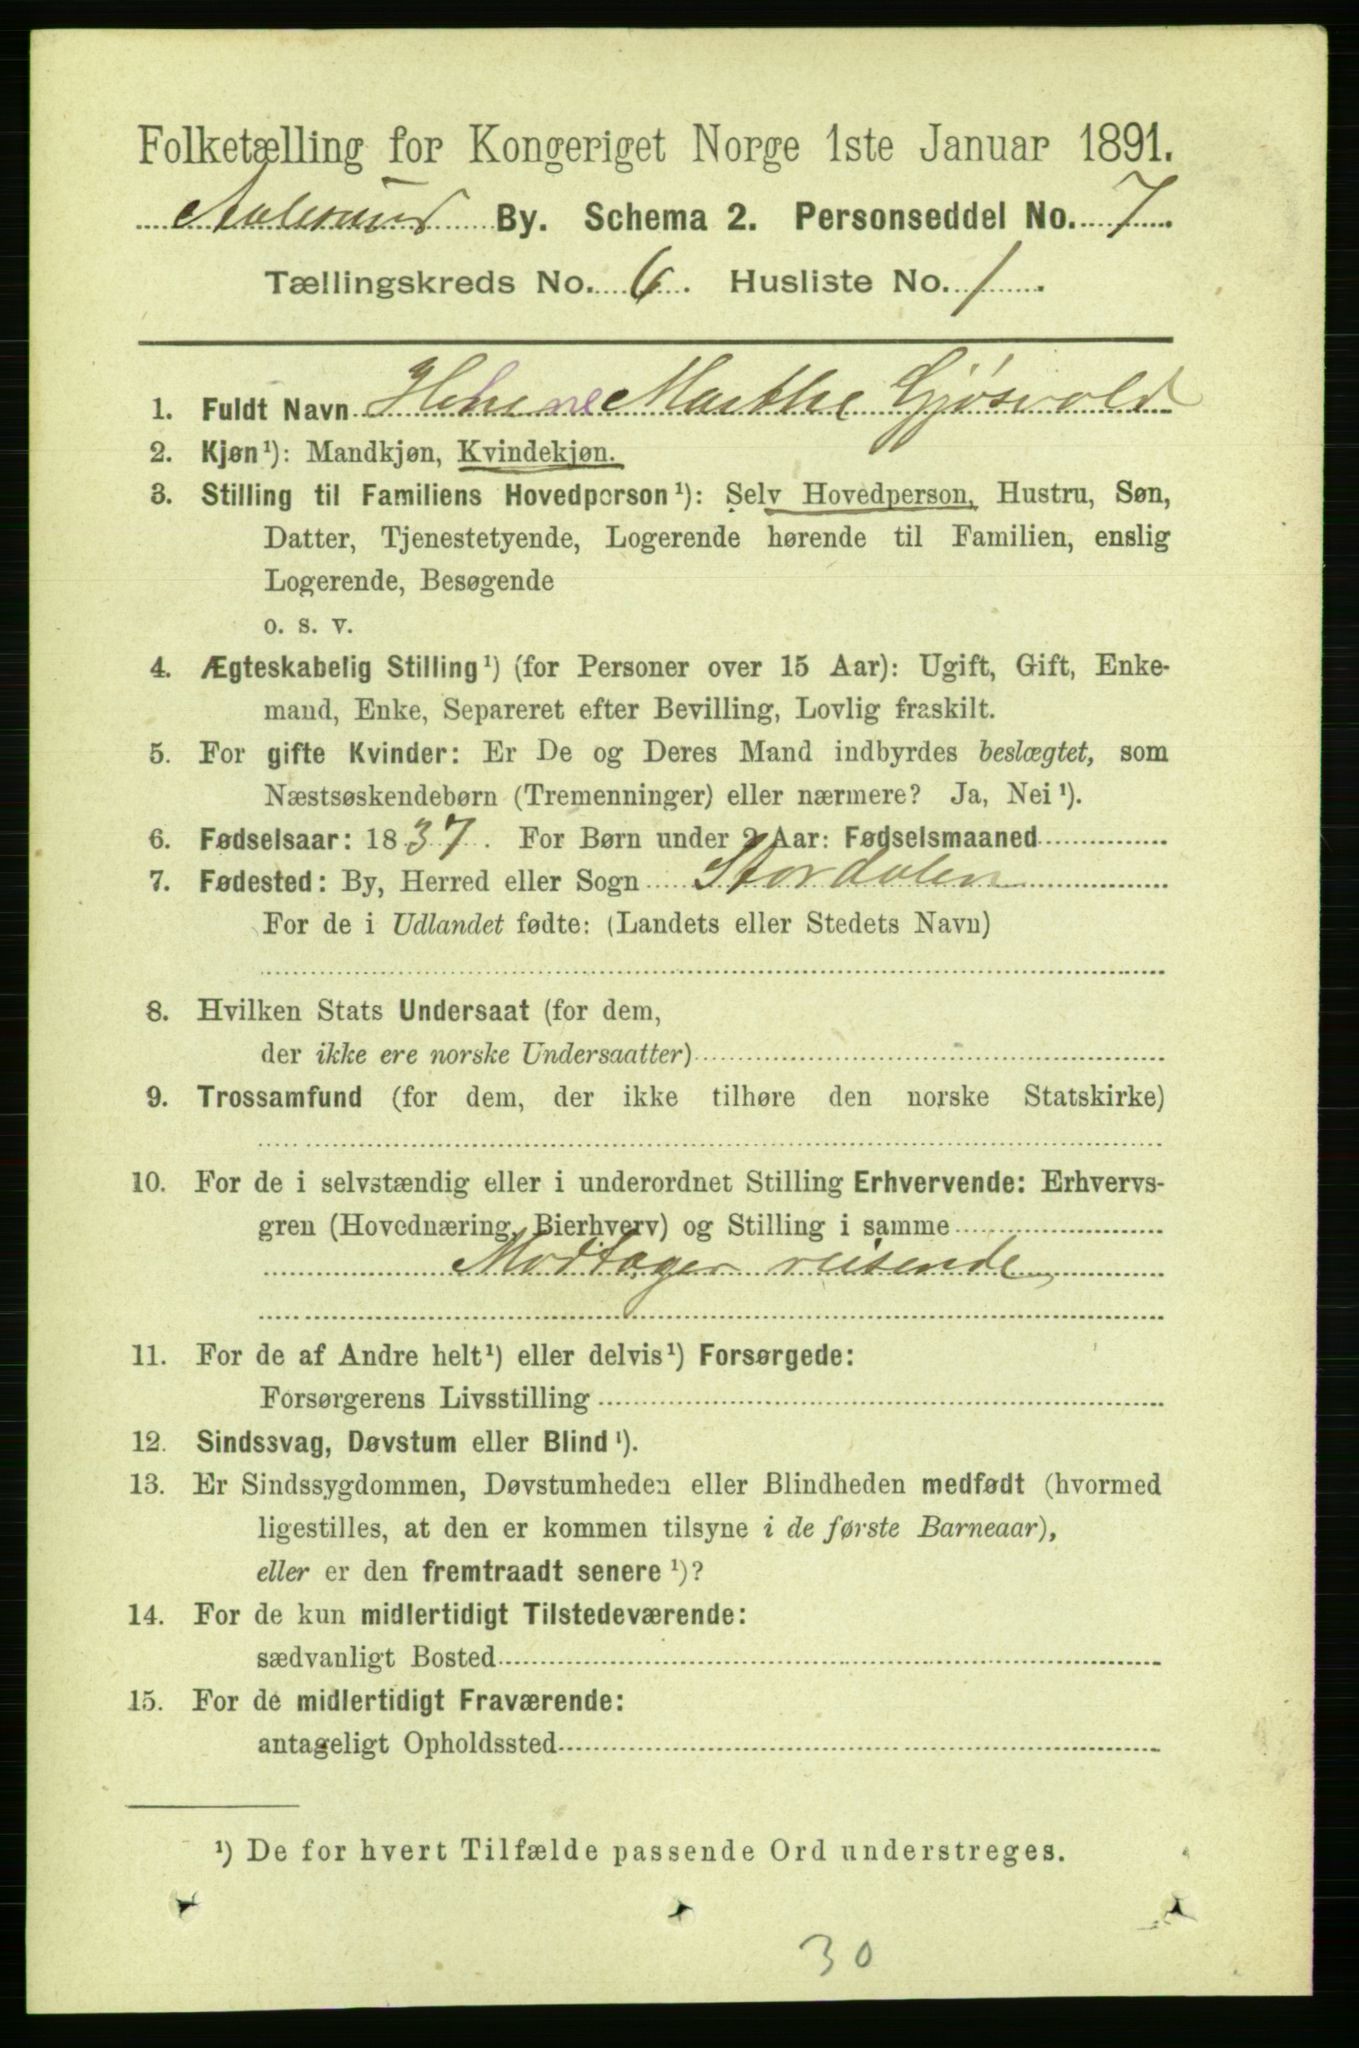 Folketælling for Kongeriget Norge 1ste Januar 1891.
Aalesund By. Schema 2. Personseddel No. 7.
Tællingskreds No. 6. Husliste No. 1.
1. Fuldt Navn Helene Marthe Gjøsvold
2. Kjøn¹): Mandkjøn, Kvindekjøn.
3. Stilling til Familiens Hovedperson¹): Selv Hovedperson, Hustru, Søn,
Datter, Tjenestetyende, Logerende hørende til Familien, enslig
Logerende, Besøgende
o. s. v.
4. Ægteskabelig Stilling¹) (for Personer over 15 Aar): Ugift, Gift, Enke-
mand, Enke, Separeret efter Bevilling, Lovlig fraskilt.
5. For gifte Kvinder: Er De og Deres Mand indbyrdes beslægtet, som
Næstsøskendebørn (Tremenninger) eller nærmere? Ja, Nei¹).
6. Fødselsaar: 1837. For Børn under 2 Aar: Fødselsmaaned
7. Fødested: By, Herred eller Sogn Stordalen
For de i Udlandet fødte: (Landets eller Stedets Navn)
8. Hvilken Stats Undersaat (for dem,
der ikke ere norske Undersaatter)
9. Trossamfund (for dem, der ikke tilhøre den norske Statskirke)
10. For de i selvstændig eller i underordnet Stilling Erhvervende: Erhvervs-
gren (Hovednæring, Bierhverv) og Stilling i samme
Modtager reisende
11. For de af Andre helt¹) eller delvis¹) Forsørgede:
Forsørgerens Livsstilling
12. Sindssvag, Døvstum eller Blind¹).
13. Er Sindssygdommen, Døvstumheden eller Blindheden medfødt (hvormed
ligestilles, at den er kommen tilsyne i de første Barneaar),
eller er den fremtraadt senere¹)?
14. For de kun midlertidigt Tilstedeværende:
sædvanligt Bosted
15. For de midlertidigt Fraværende:
antageligt Opholdssted
¹) De for hvert Tilfælde passende Ord understreges.
30